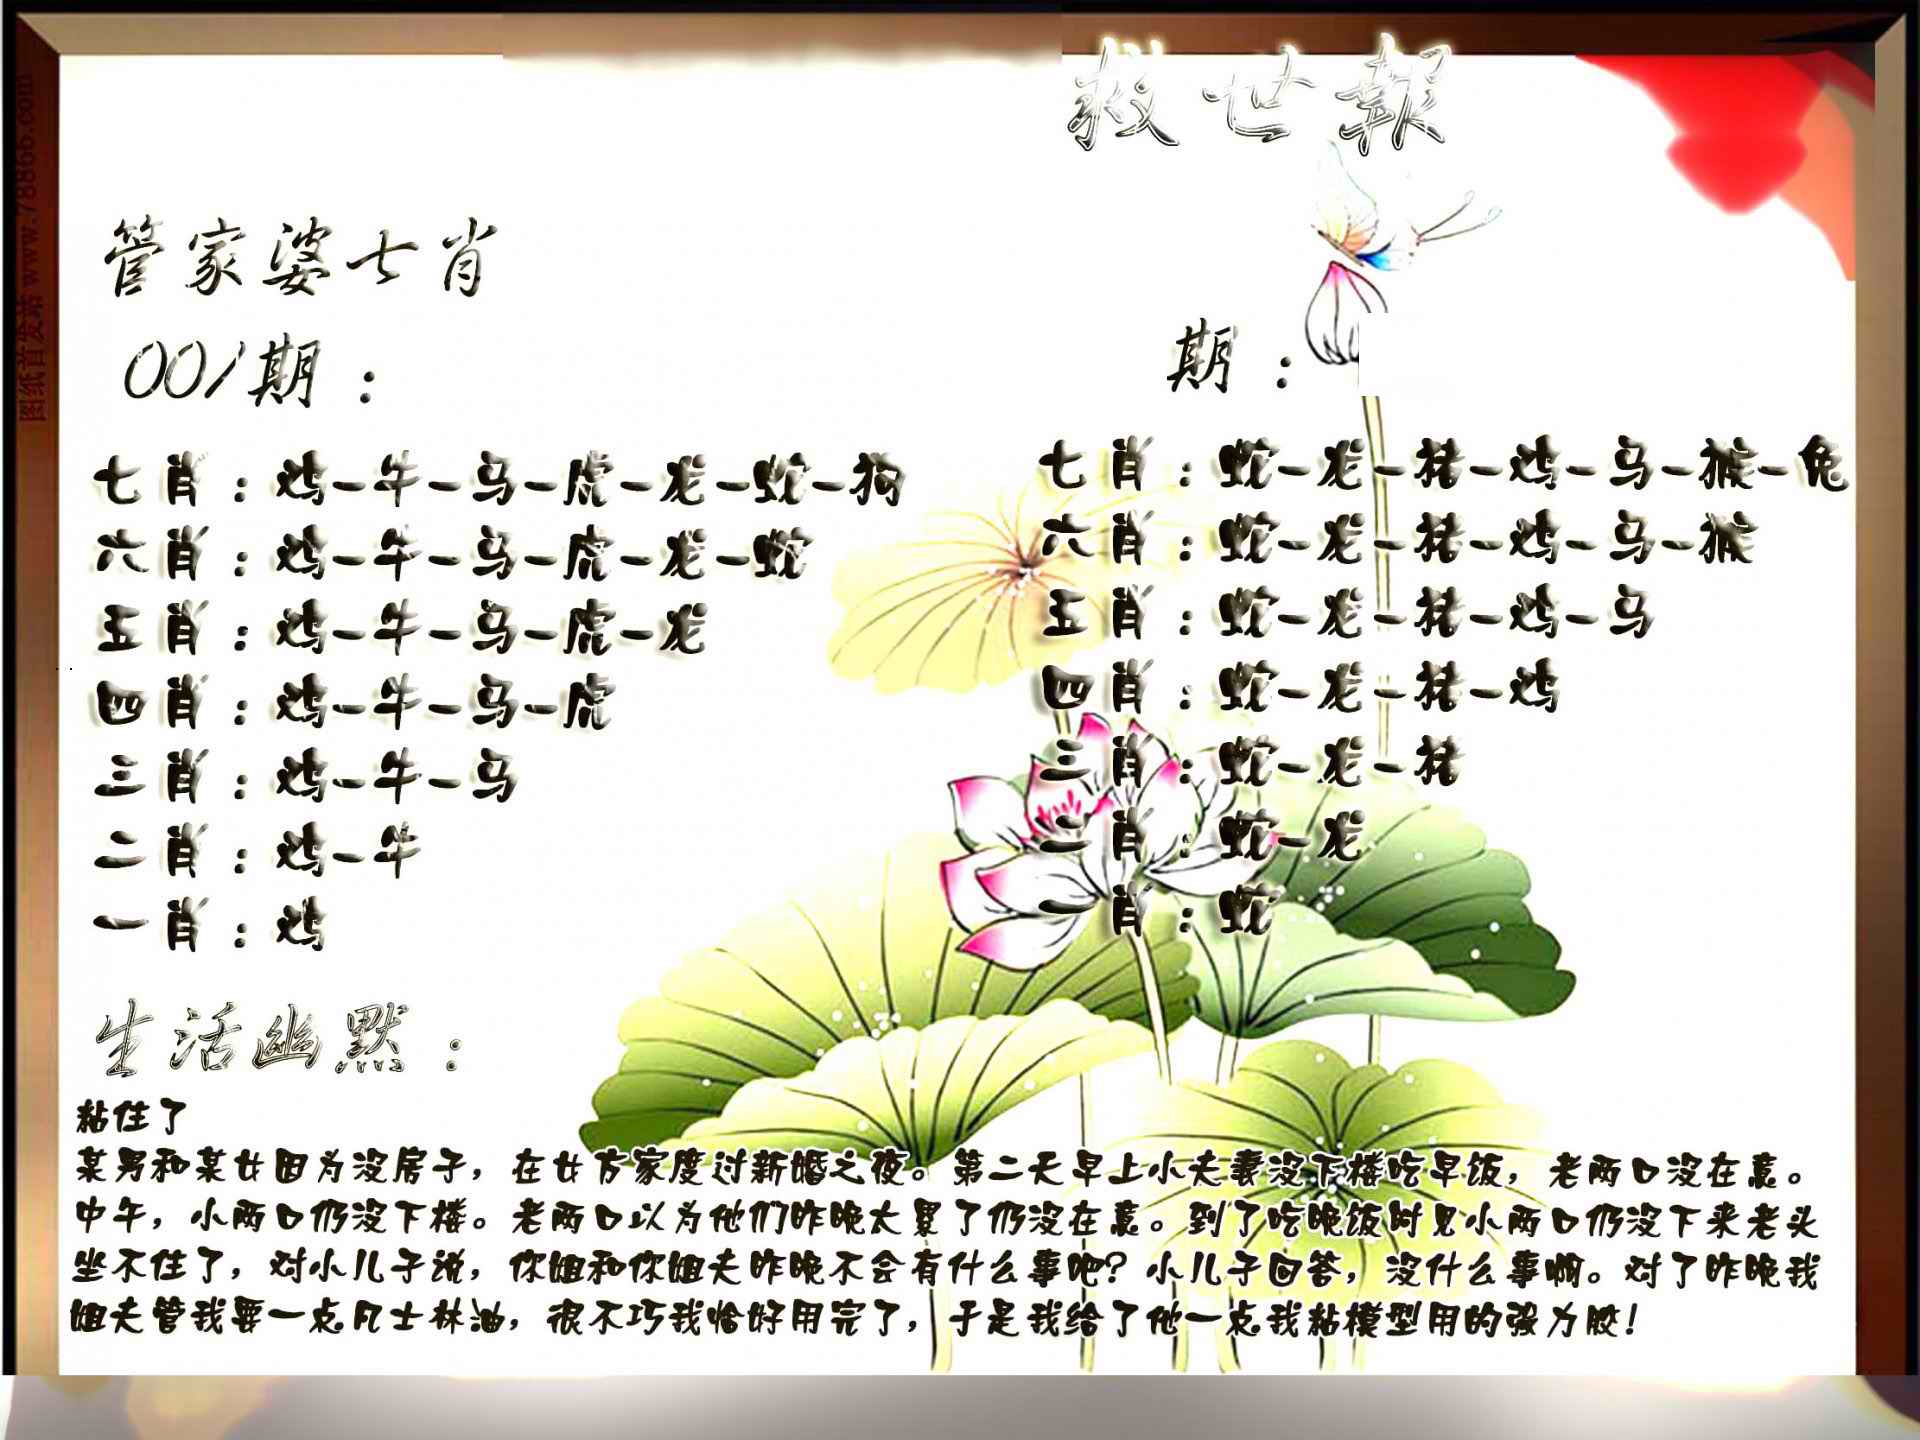 救世報
管家婆七肖
001期：
七肖：鸡-牛-马-虎-龙-蛇-狗
六肖：鸡-牛-马-虎-龙-蛇
五肖：鸡-牛-马-虎-龙
四肖：鸡-牛-马-虎
三肖：鸡-牛-马
二肖：鸡-牛
一肖：鸡
期：
七肖：蛇-龙-猪-鸡-马-猴-兔
六肖：蛇-龙-猪-鸡-马-猴
五肖：蛇-龙-猪-鸡-马
四肖：蛇-龙-猪-鸡
三肖：蛇-龙-猪
二肖：蛇-龙
一肖：蛇
生活幽默：
粘住了
某男和某女因为没房子，在女方家度过新婚之夜。第二天早上小夫妻没下楼吃早饭，老两口没在意。
中午，小两口仍没下楼。老两口以为他们昨晚太累了仍没在意。到了吃晚饭时见小两口仍没下来老头
坐不住了，对小儿子说，你姐和你姐夫昨晚不会有什么事吧？小儿子回答，没什么事啊。对了昨晚我
姐夫管我要一点凡士林油，很不巧我恰好用完了，于是我给了他一点我粘模型用的强力胶！
图纸首发站 www.78866.com